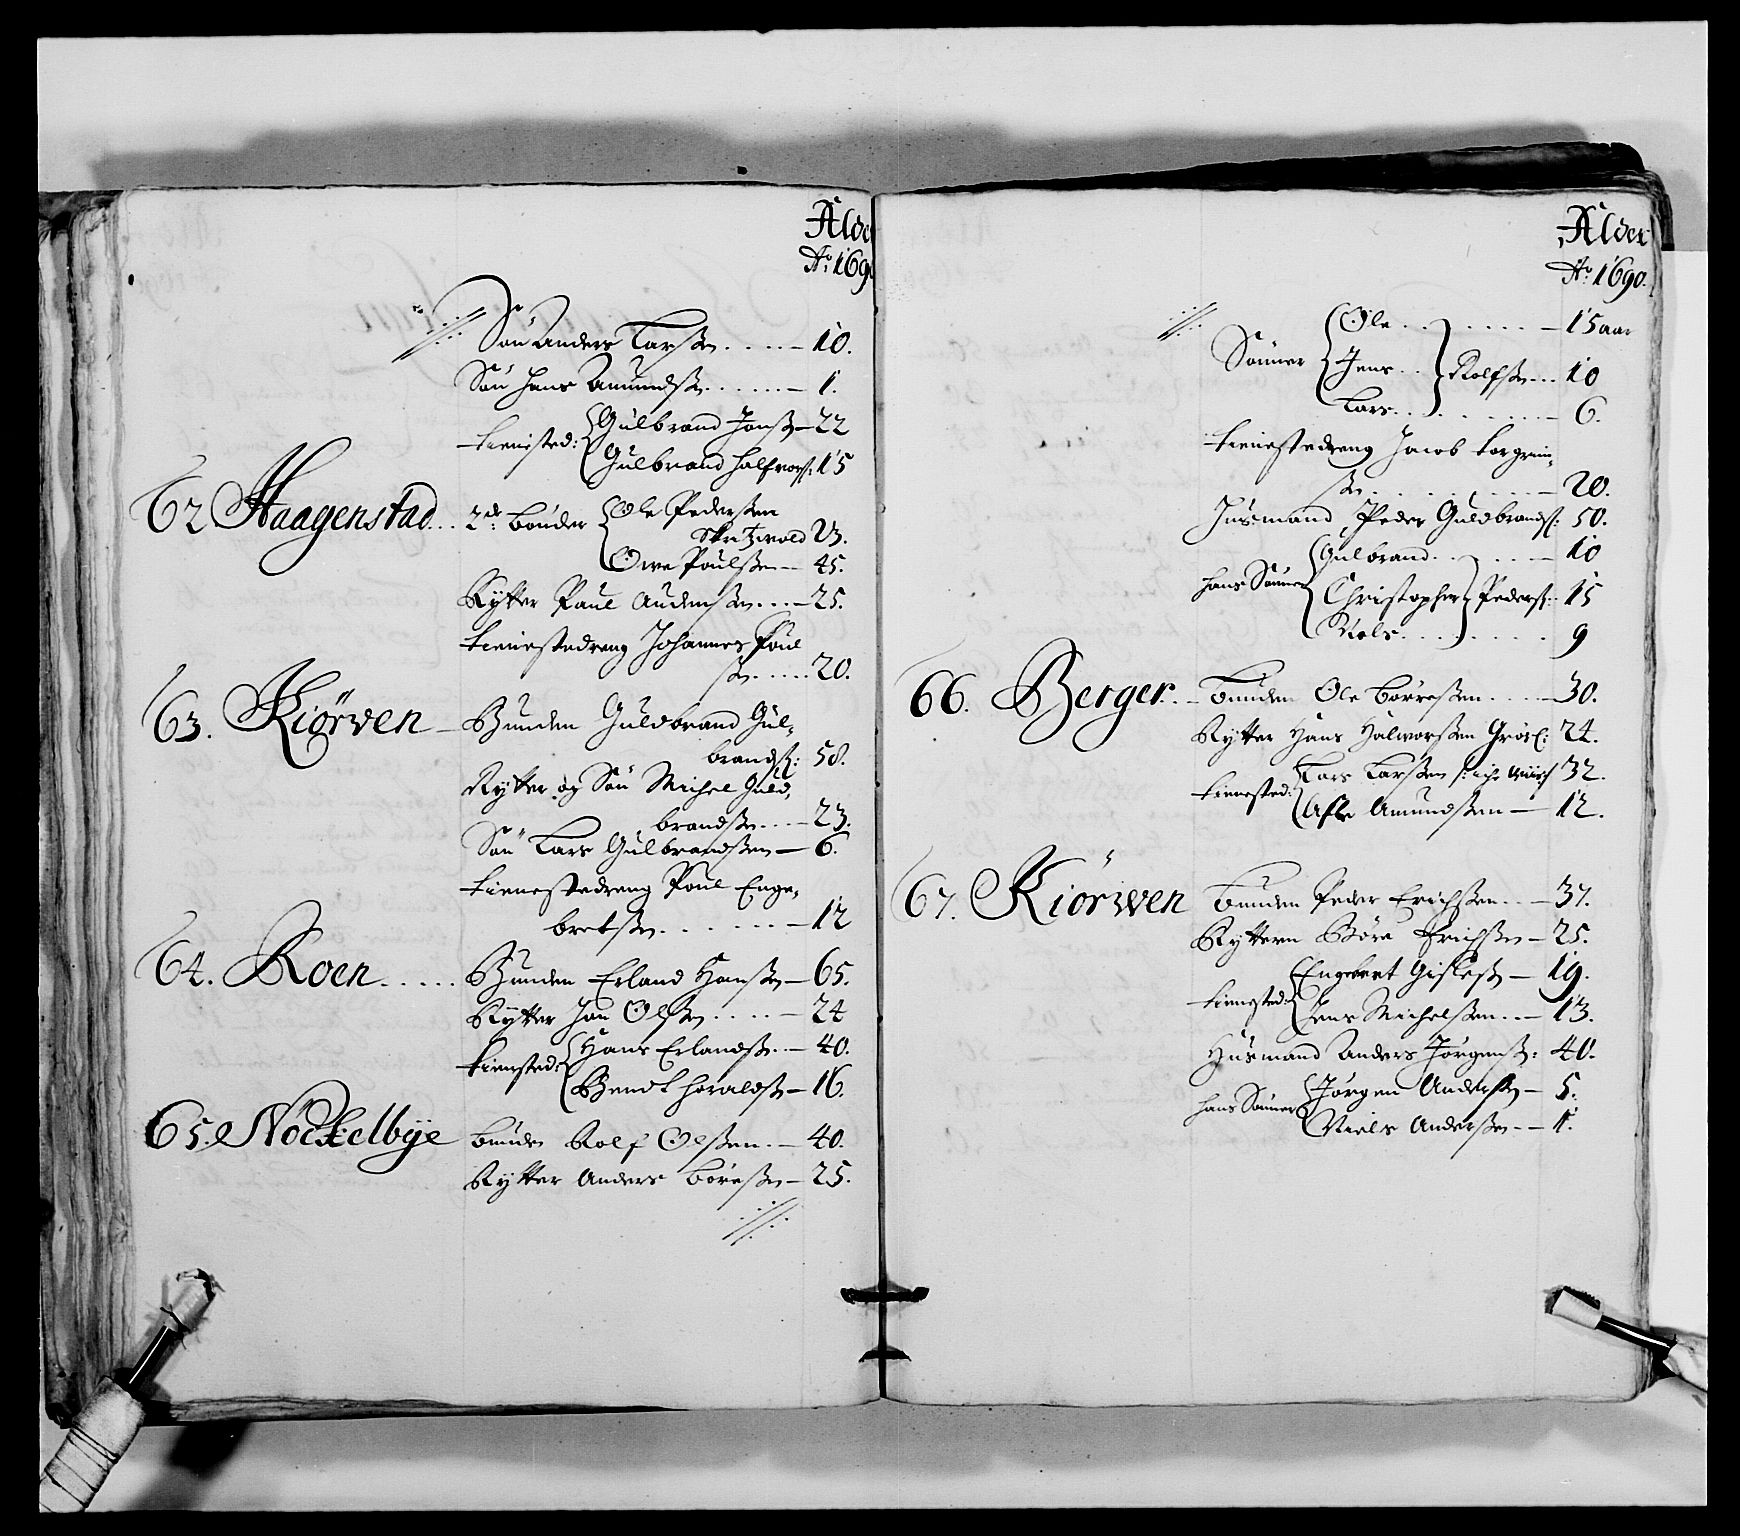 Alder
Ao: 1690
Søn Anders Larssen . . . . – 10.
Søn Hans Amundss. . . . . . – 1.
tienisted: Gulbrand Jonss – 22
Gulbrand Halfvorss: 15
62 Haagenstad . . . 2de bønder Ole Pederssen
Skretzvold 23.
Owe Poulssen – – 45.
Rytter Paul Audenssen . . . – 25.
tienestedreng Johannes Poul
ss. . . . . . 20.
63. Kiörven – Bunden Guldbrand Gul-
brands: 58.
Rytter og Søn Michel Guld-
brandss. . . . – 23.
Søn Lars Gulbrandssen – 6.
tienestedreng Poul Enge-
bretss. . . . . . . – 12
64. Roen . . . . . Bunden Erland Hanss – 65.
Rytter Jon Olss . . . . – 24
tiensted: Hans Erlandss. . – 40.
Bendt Haraldss – 16.
65. Nöckelbÿe bunden Rolf Olssen . – 40.
Rytter Anders Børess – 25.
Alder
Ao: 1690.
Sønner Ole . . . . . . . – 15 aar
Jens . . Rolfss . . . 10
Lars . . . . . . . . . – 6.
tienestedreng Jacob Torgrim-
ss . . . . . . . . . – 20.
Husmand Peder Guldbrands: 50.
hans Sønner Gulbrand . . . . . – 10
Christopher Peders: . 15
Niels . . . . . . . . . 9
66. Berger . . – bunden Ole Børressen . . . . – 30.
Rytter Hans Halworssen 24.
tienested: Lars Larssen 32.
Amundssen – 12.
67. Kiörwen bunden Peder Erichssen . . – 37.
Ryttern Børe Erichss – 25.
tienested: Engebret Gisless – 19.
Jens Michelssen . . – 13.
Husmand Anders Jørgenss: 40.
hans Sønner Jørgen Anderss – 5.
Niels Anderss . – 1.